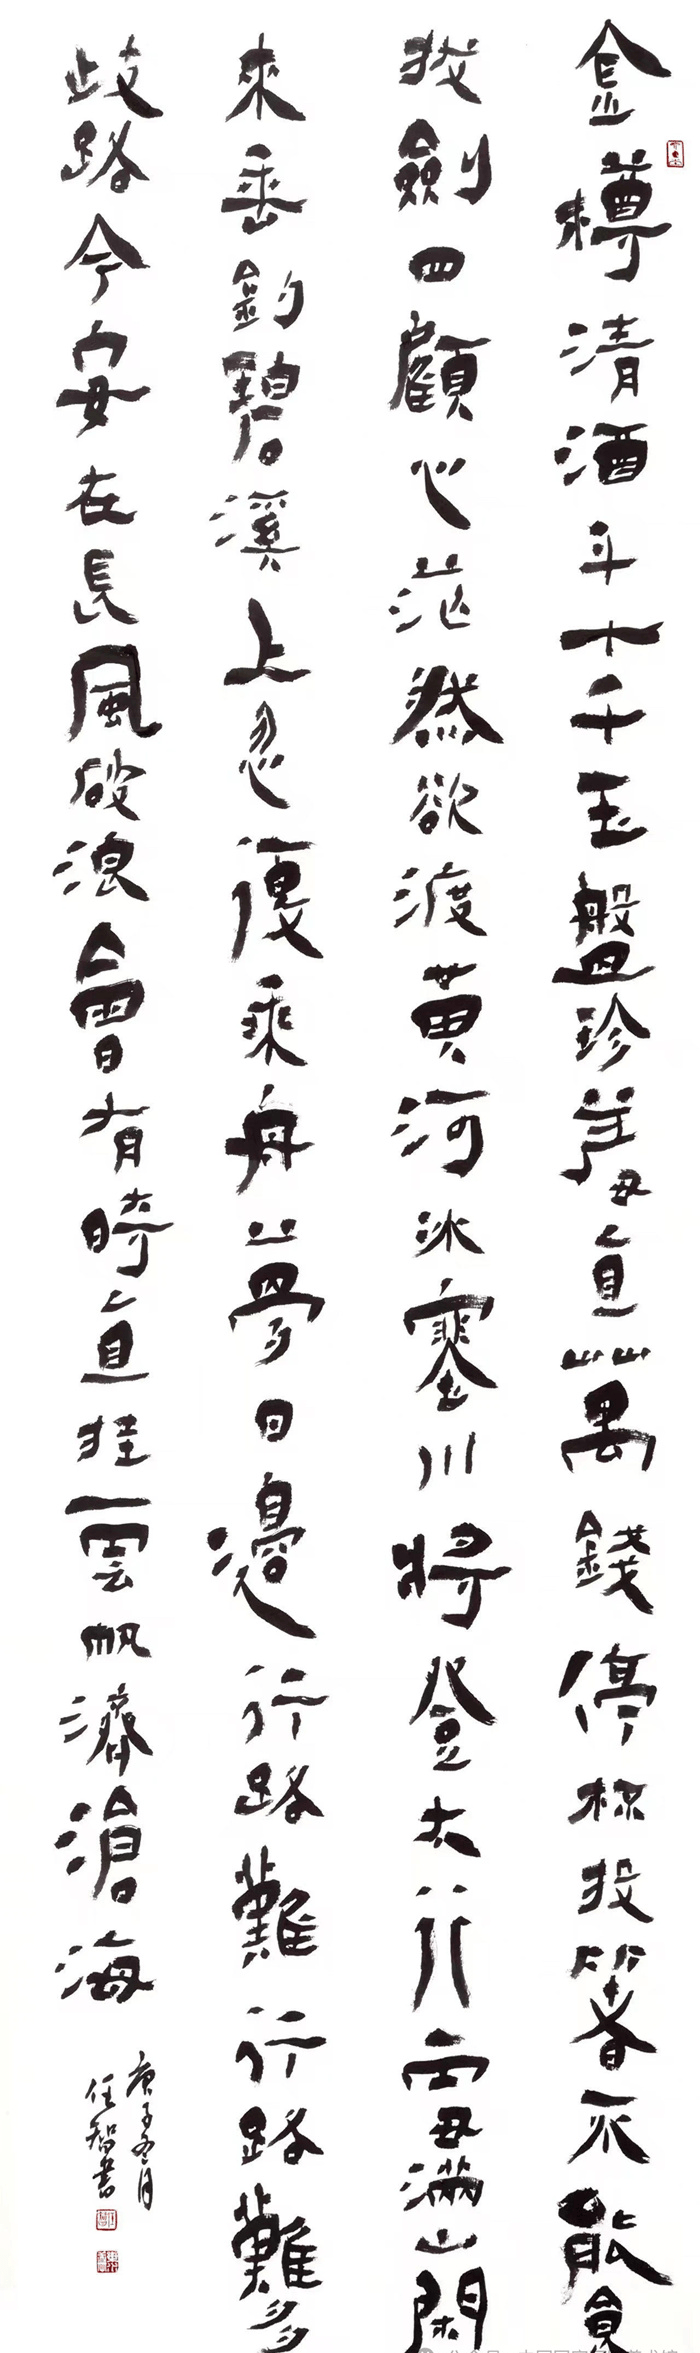 金樽清酒斗十千玉盤珍羞直萬錢停杯投箸不能食
拔劍四顧心茫然欲渡黃河冰塞川將登太行雪滿山閑
來垂釣碧溪上忽復乘舟夢日邊行路難行路難多
歧路今安在長風破浪會有時直挂雲帆濟滄海
庚子冬月
任智書